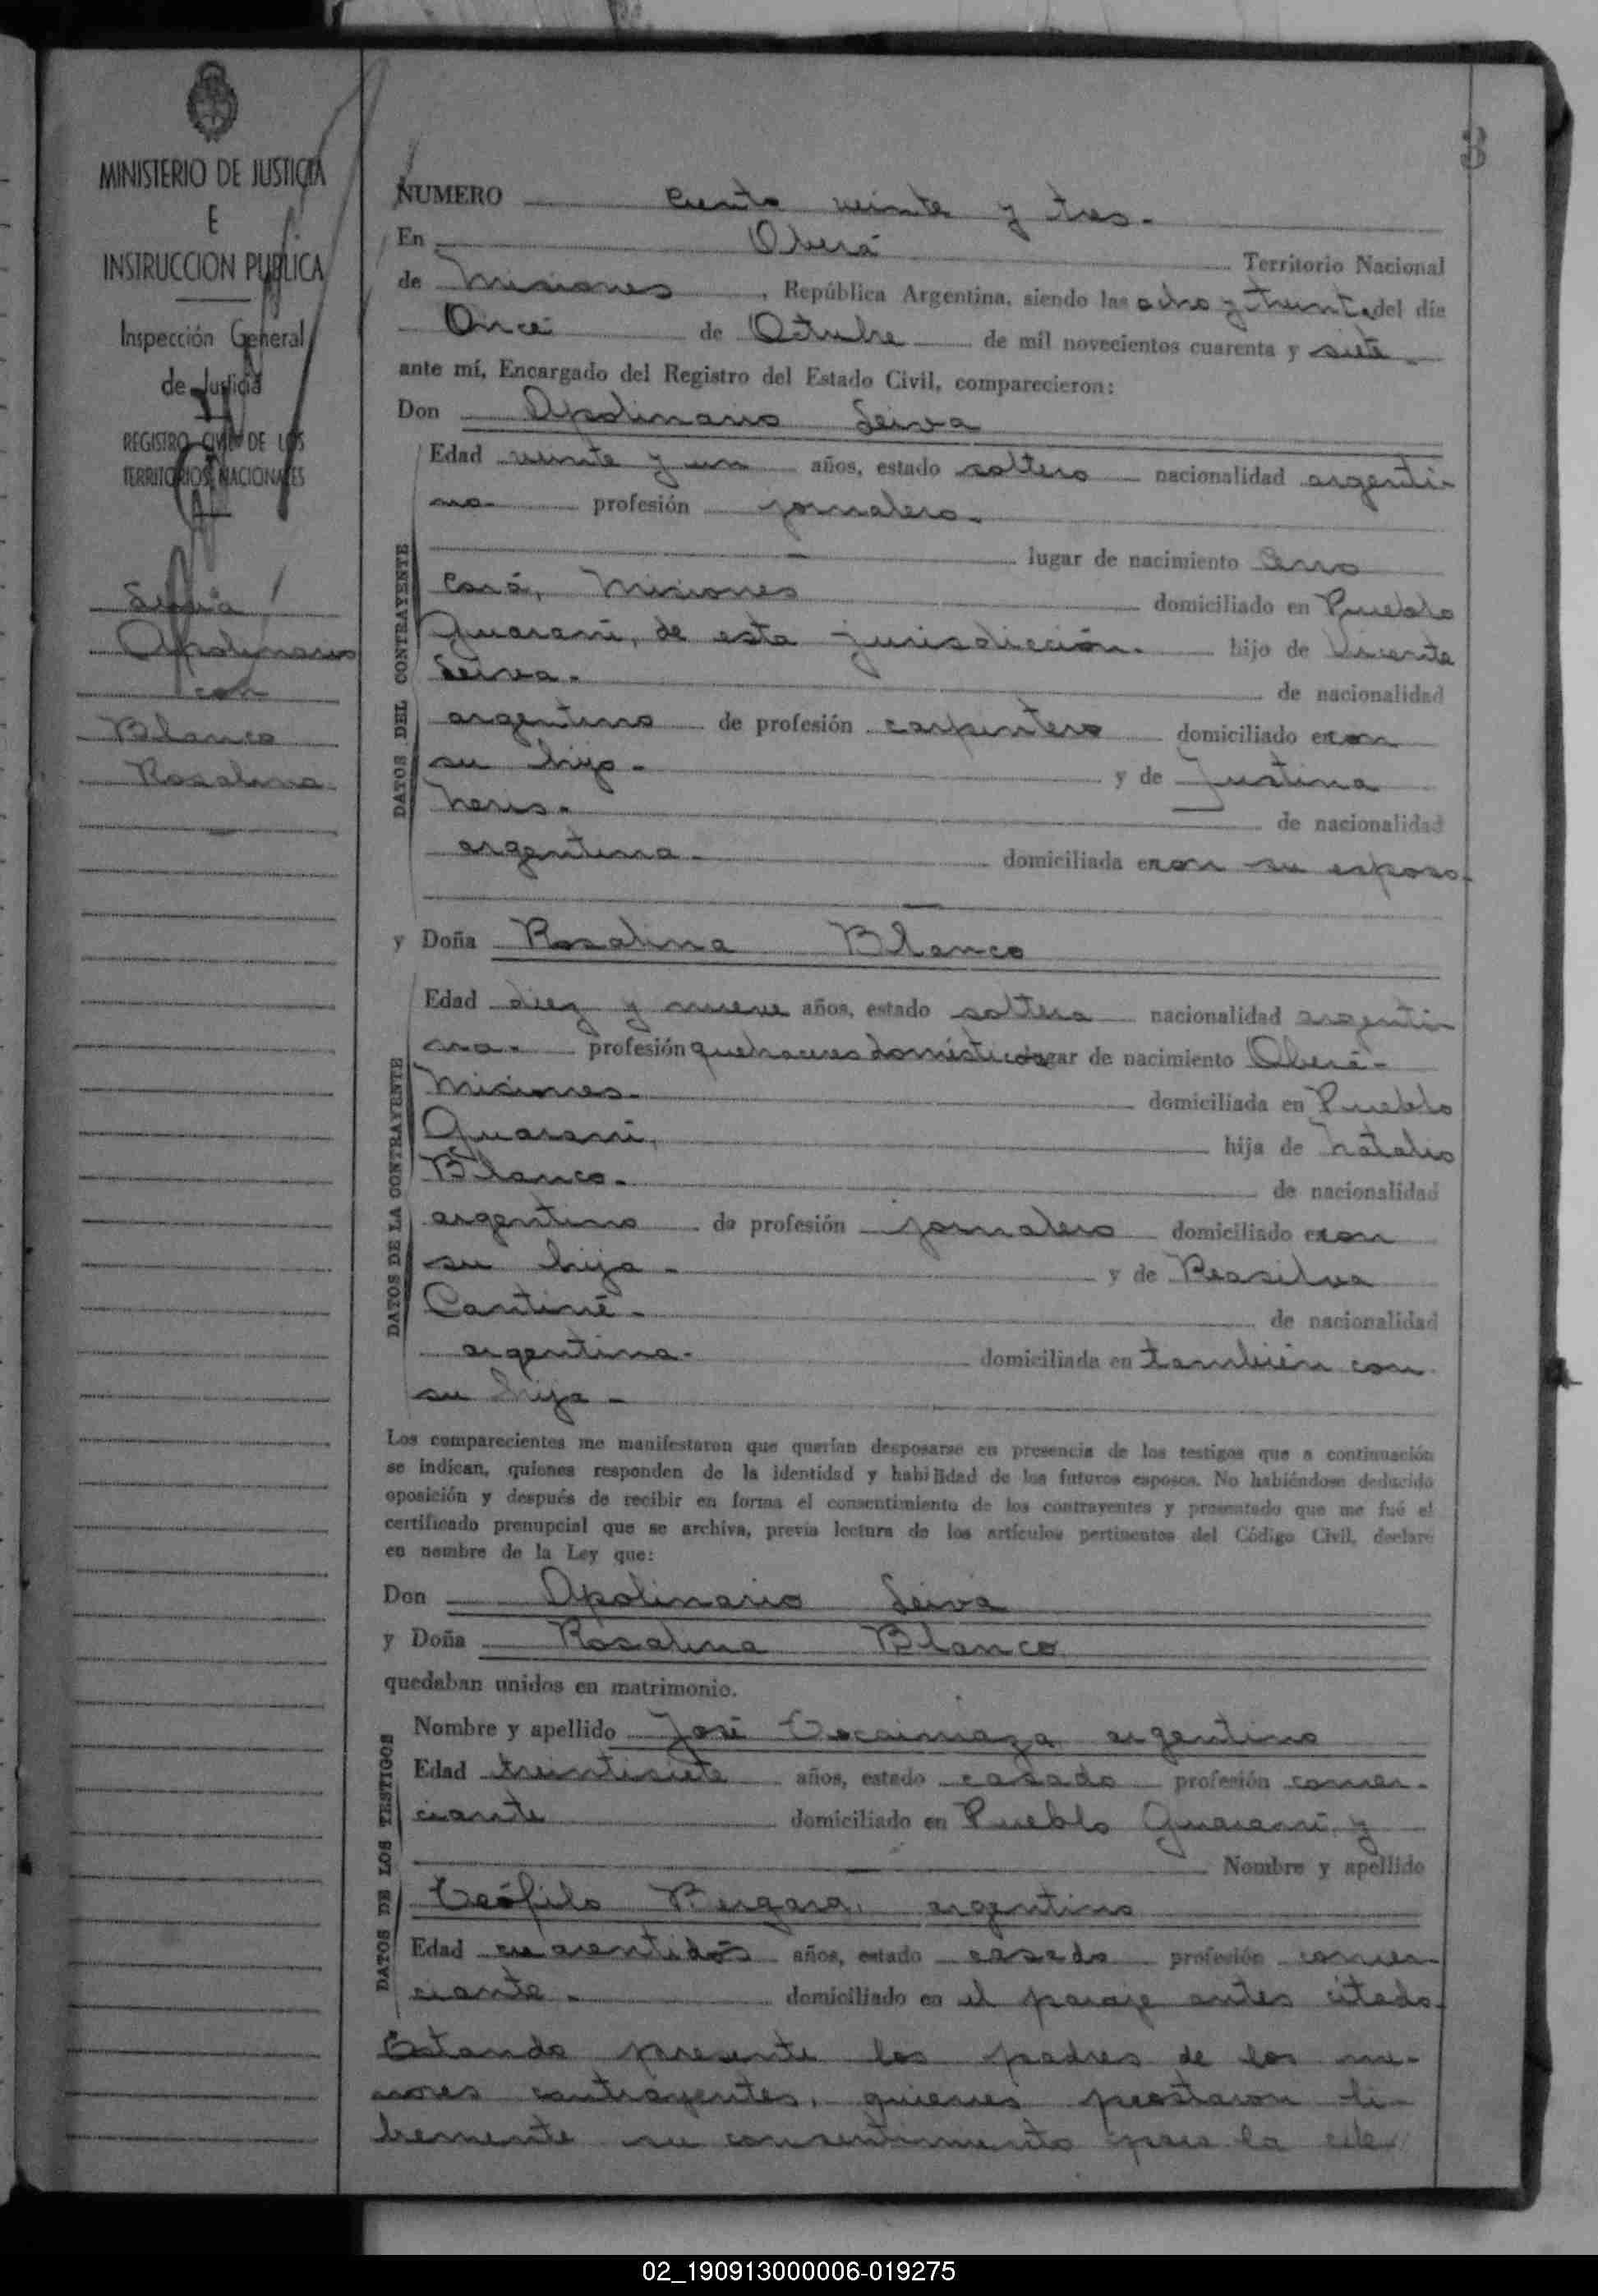 MINISTERIO DE JUSTICIA
E
INSTRUCCION PUBLICA
Inspección General
de Justicia
REGISTRO CIVIL DE LOS
TERRITORIOS NACIONALES
Leiva
Apolinario
con
Blanco
Rosalina
NUMERO Ciento veinte y tres.
En Oberá Territorio Nacional
de Misiones, República Argentina, siendo las ocho y treinta del día
Once de Octubre de mil novecientos cuarenta y siete
ante mí, Encargado del Registro del Estado Civil, comparecieron:
Don Apolinario Leiva
DATOS DEL CONTRAYENTE
Edad veinte y un años, estado soltero nacionalidad argenti-
no. profesión jornalero.
lugar de nacimiento Cerro
Corá, Misiones domiciliado en Pueblo
Guaraní, de esta jurisdicción. hijo de Vicente
Leiva. de nacionalidad
argentino de profesión carpintero domiciliado con
su hijo. y de Justina
de nacionalidad
argentina. domiciliada con su esposo.
y Doña Rosalina Blanco
DATOS DE LA CONTRAYENTE
Edad diez y nueve años, estado soltera nacionalidad argenti-
na. profesión quehaceres domésticos lugar de nacimiento Oberá-
Misiones. domiciliada en Pueblo
Guaraní, hija de Natalio
Blanco. de nacionalidad
argentino de profesión jornalero domiciliado con
su hija. y de
de nacionalidad
argentina. domiciliada en también con
su hija.
Los comparecientes me manifestaron que querían desposarse en presencia de los testigos que a continuación
se indican, quienes responden de la identidad y habilidad de los futuros esposos. No habiéndose deducido
oposición y después de recibir en forma el consentimiento de los contrayentes y presentado que me fué el
certificado prenupcial que se archiva, previa lectura de los artículos pertinentes del Código Civil, declaro
en nombre de la Ley que:
Don Apolinario Leiva
y Doña Rosalina Blanco
quedaban unidos en matrimonio.
DATOS DE LOS TESTIGOS
Nombre y apellido José argentino
Edad treintisiete años, estado casado profesión comer-
ciante domiciliado en Pueblo Guaraní y
Nombre y apellido
Teófilo Bergara, argentino
Edad cuarentidós años, estado casado profesión comer-
ciante. domiciliado en el paraje antes citado.
Estando presente los padres de los me-
nores contrayentes, quienes prestaron li-
bremente su consentimiento para la cele
02_190913000006-019275